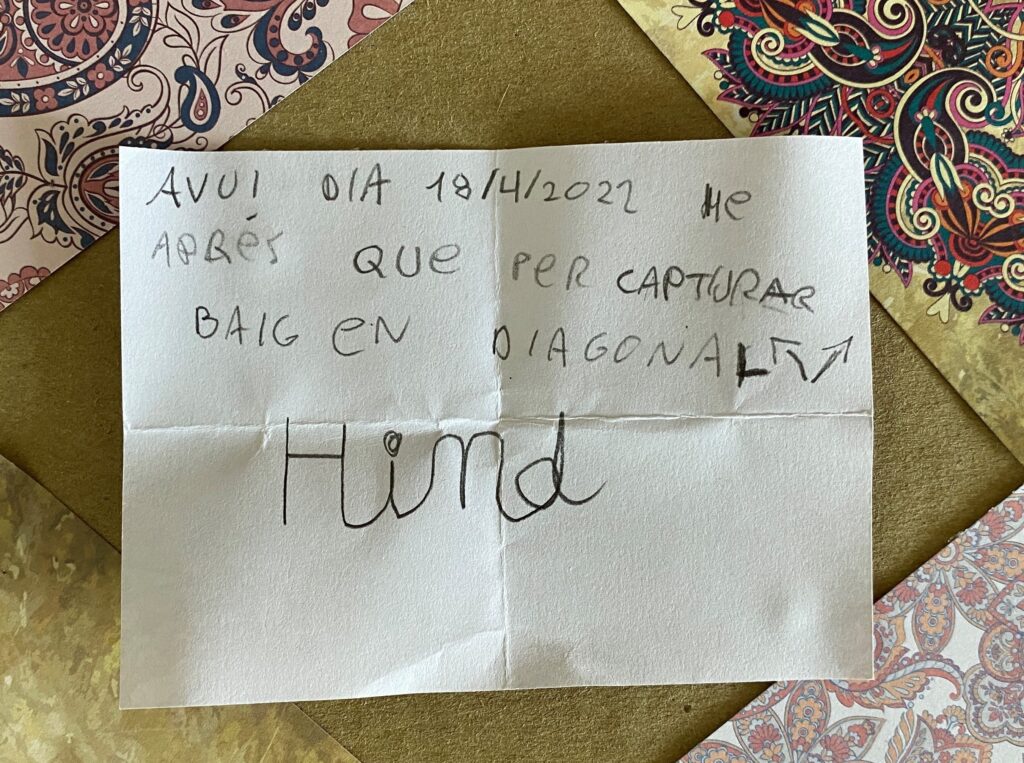 AVUI DIA 18/4/2022 He
APRéS QUe PER CAPTURAR
BAIG eN DIAGONAL ↖↗
Hind